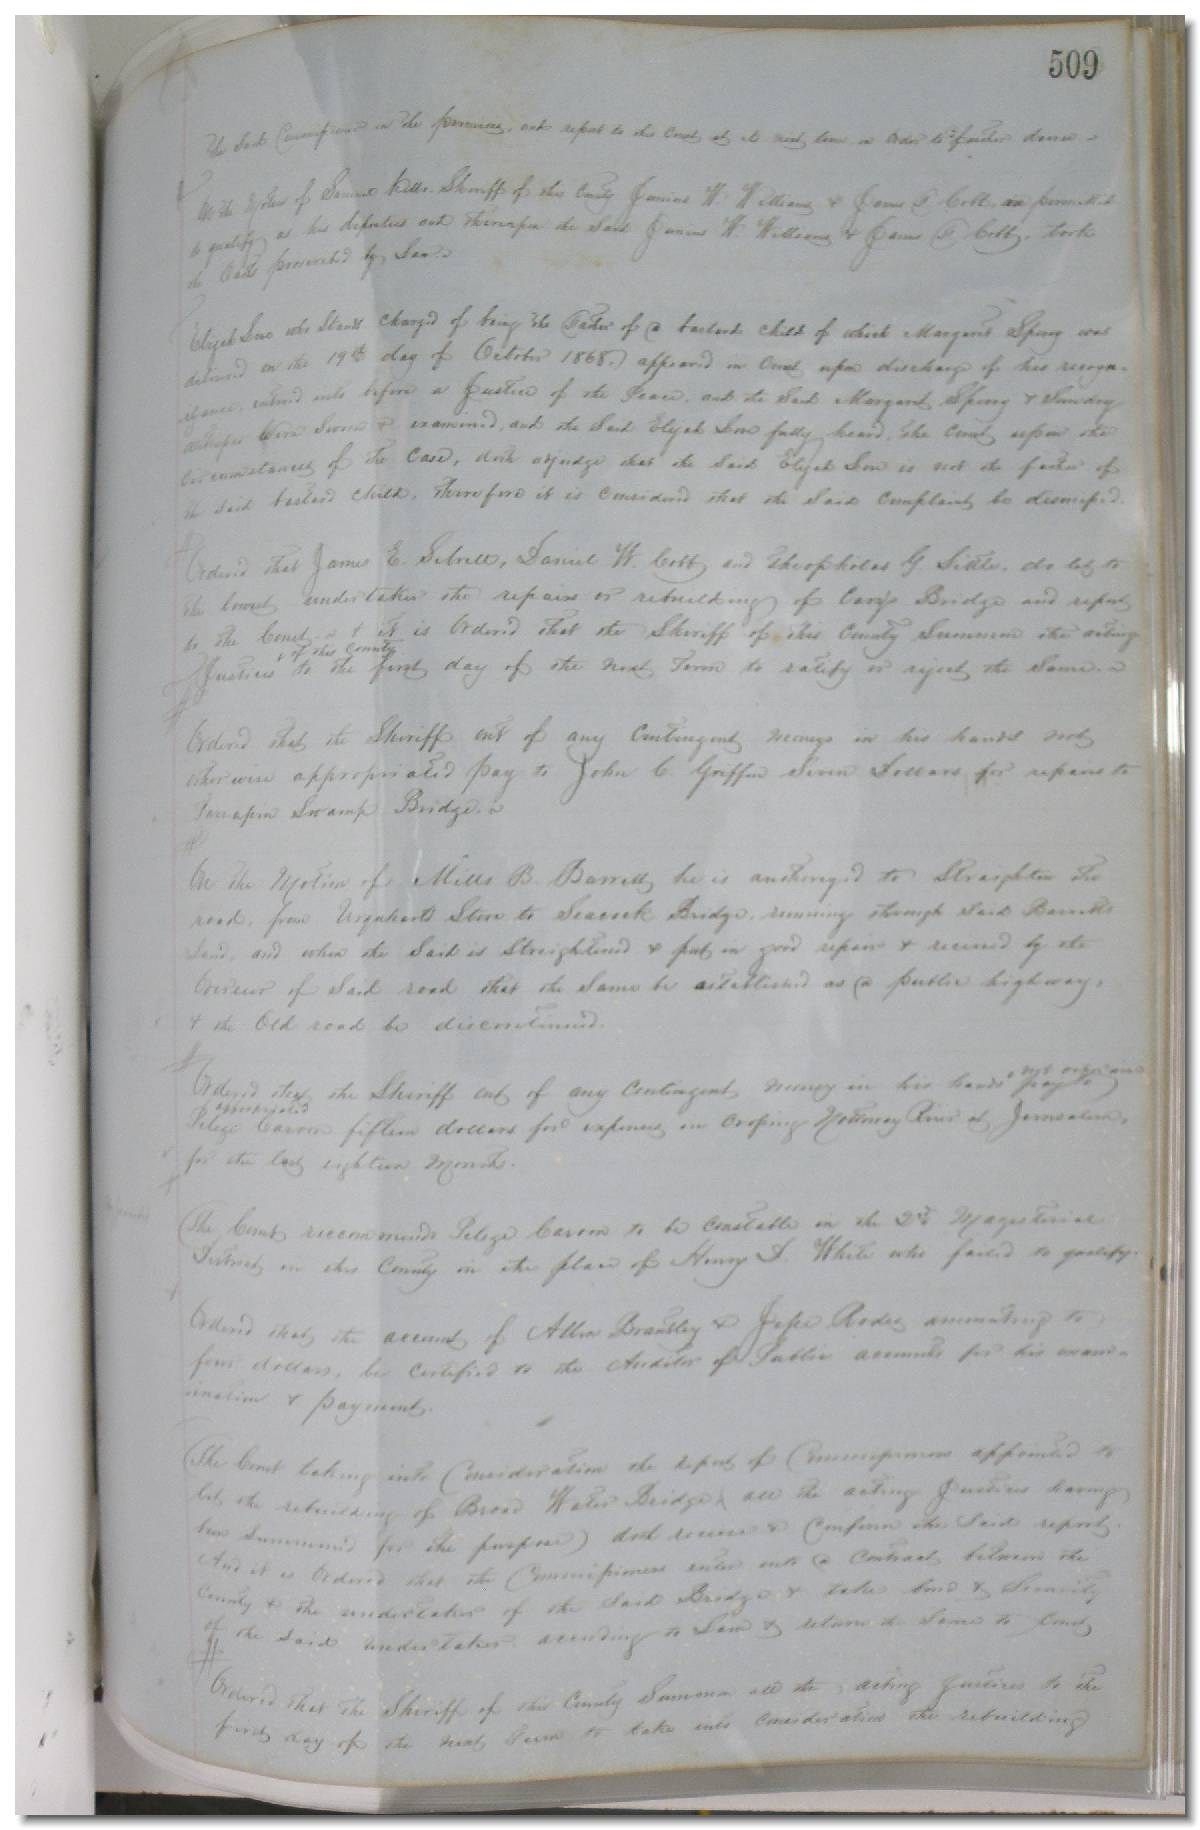 509
the said Commissioners in the premises, and report to this Court at its next term in order to further
On the Motion of Samuel Kello Sheriff of this County Junius W. Williams & James T Cobb, are permitted
to qualify as his deputies and thereupon the said Junius W. Williams & James T Cobb, took
the Oaths prescribed by Law.
Elijah who stands charged of being the Father of a bastard child of which Margaret Spivey was
delivered on the 19th day of October 1868.) appeared in Court upon discharge of his recogn-
izance, entered into before a Justice of the Peace, and the said Margaret Spivey & Sundry
witnesses were sworn & examined, and the said Elijah fully heard, the Court upon the
Circumstances of the Case, doth adjudge that the said Elijah is not the father of
the said bastard child, therefore it is considered that the said Complaint be dismissed.
Ordered that James E. Sebrell, Daniel W. Cobb and Theopholas G. do let to
the lowest undertaker the repairs or rebuilding of Cary's Bridge and report
to the Court & it is Ordered that the Sheriff of this County Summon the acting
Justices of this County to the first day of the next Term to ratify or reject the same.
Ordered that the Sheriff out of any Contingent moneys in his hands not
otherwise appropriated pay to John C. Griffin Seven Dollars for repairs to
Tarrapin Swamp Bridge.
On the Motion of Mills B. Barrett, he is authorized to Straighten the
road, from Urquharts Store to Seacock Bridge, running through said Barretts
Land, and when the said is Straightened & put in good repair & received by the
Overseer of Said road that the Same be established as a public highway,
& the Old road be discontinued.
Ordered that the Sheriff out of any Contingent money in his hands not otherwise
appropriated pay to Pelege fifteen dollars for expenses in crossing Nottoway River at Jerusalem,
for the last eighteen Months.
The Court recommends Pelege to be Constable in the 2nd Magisterial
District in this County in the place of Henry White who failed to qualify.
Ordered that the account of Allen Brantley & Jesse amounting to
four dollars, be certified to the Auditor of Public accounts for his exam-
ination & payment.
The Court taking into Consideration the report of Commissioners appointed to
let the rebuilding of Broad Water Bridge, all the acting Justices having
been Summoned for the purpose) doth receive & Confirm the said report.
And it is Ordered that the Commissioners enter into a Contract between the
County & the undertaker of the said Bridge & take bond & Security
of the said undertaker according to Law & return the Same to Court
Ordered that the Sheriff of this County Summon all the acting Justices to the
first day of the next Term to take into consideration the rebuilding